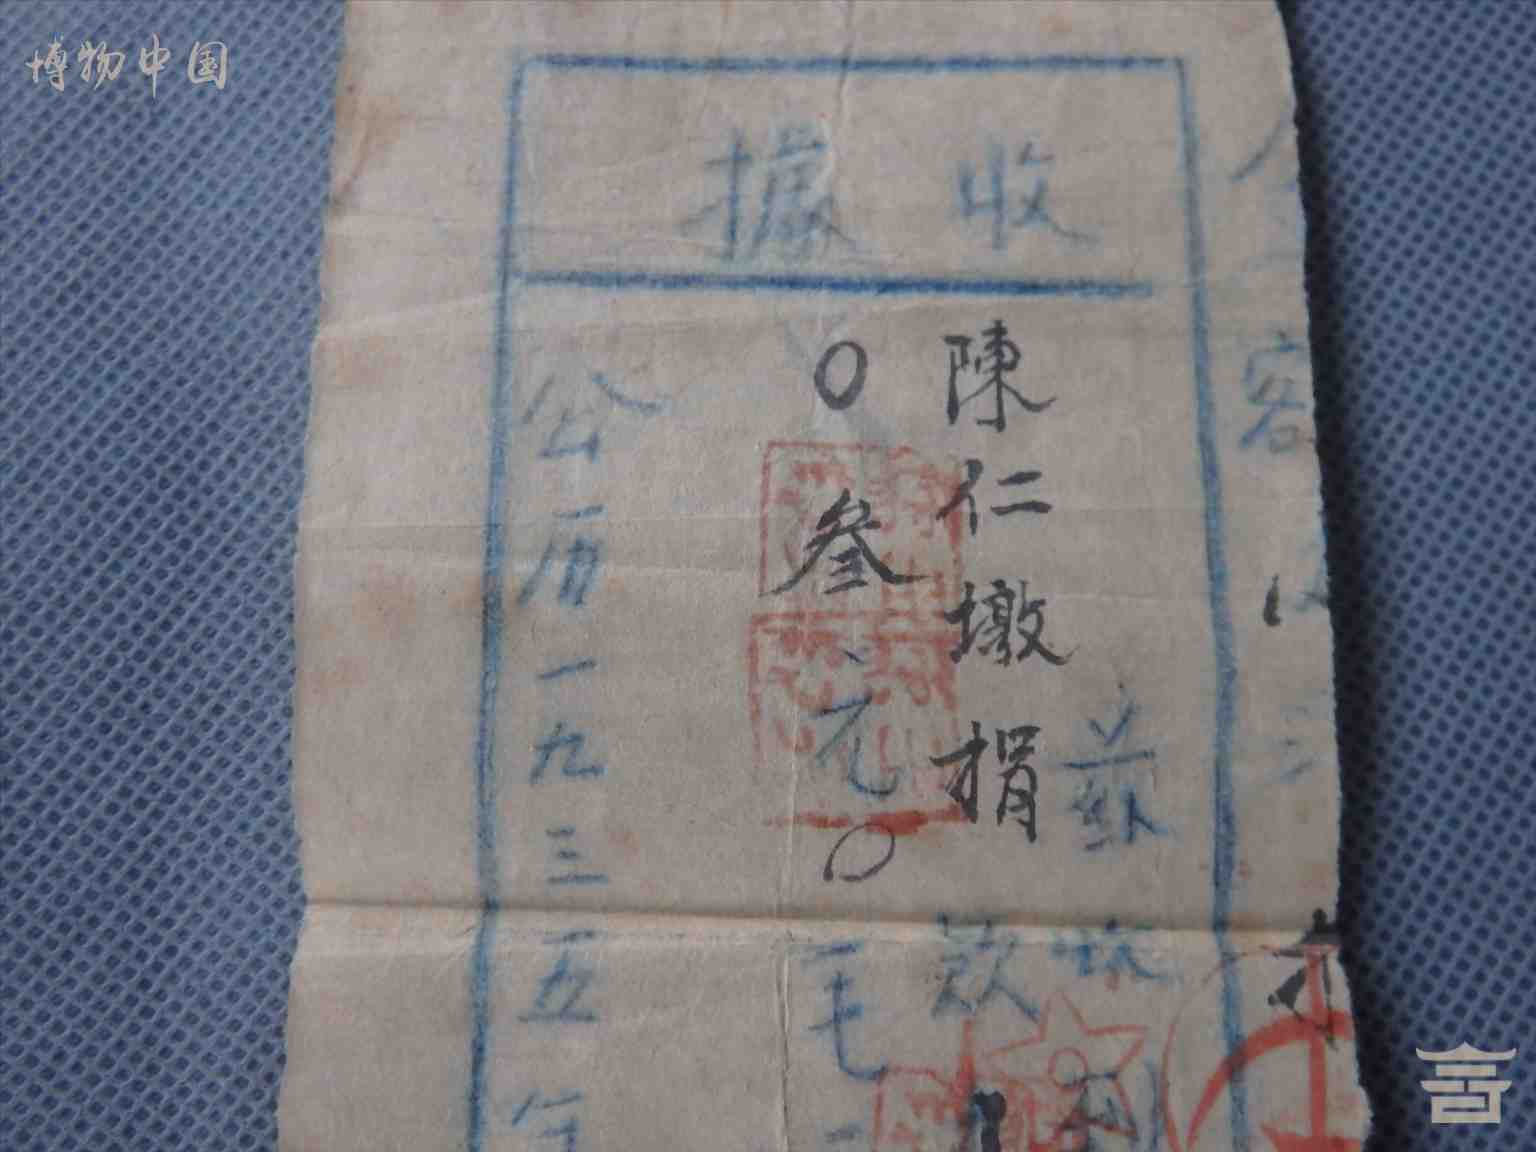 博物中国
收據
蘇
陳仁墩捐款
〇叁元〇毛
公历一九三五年
客